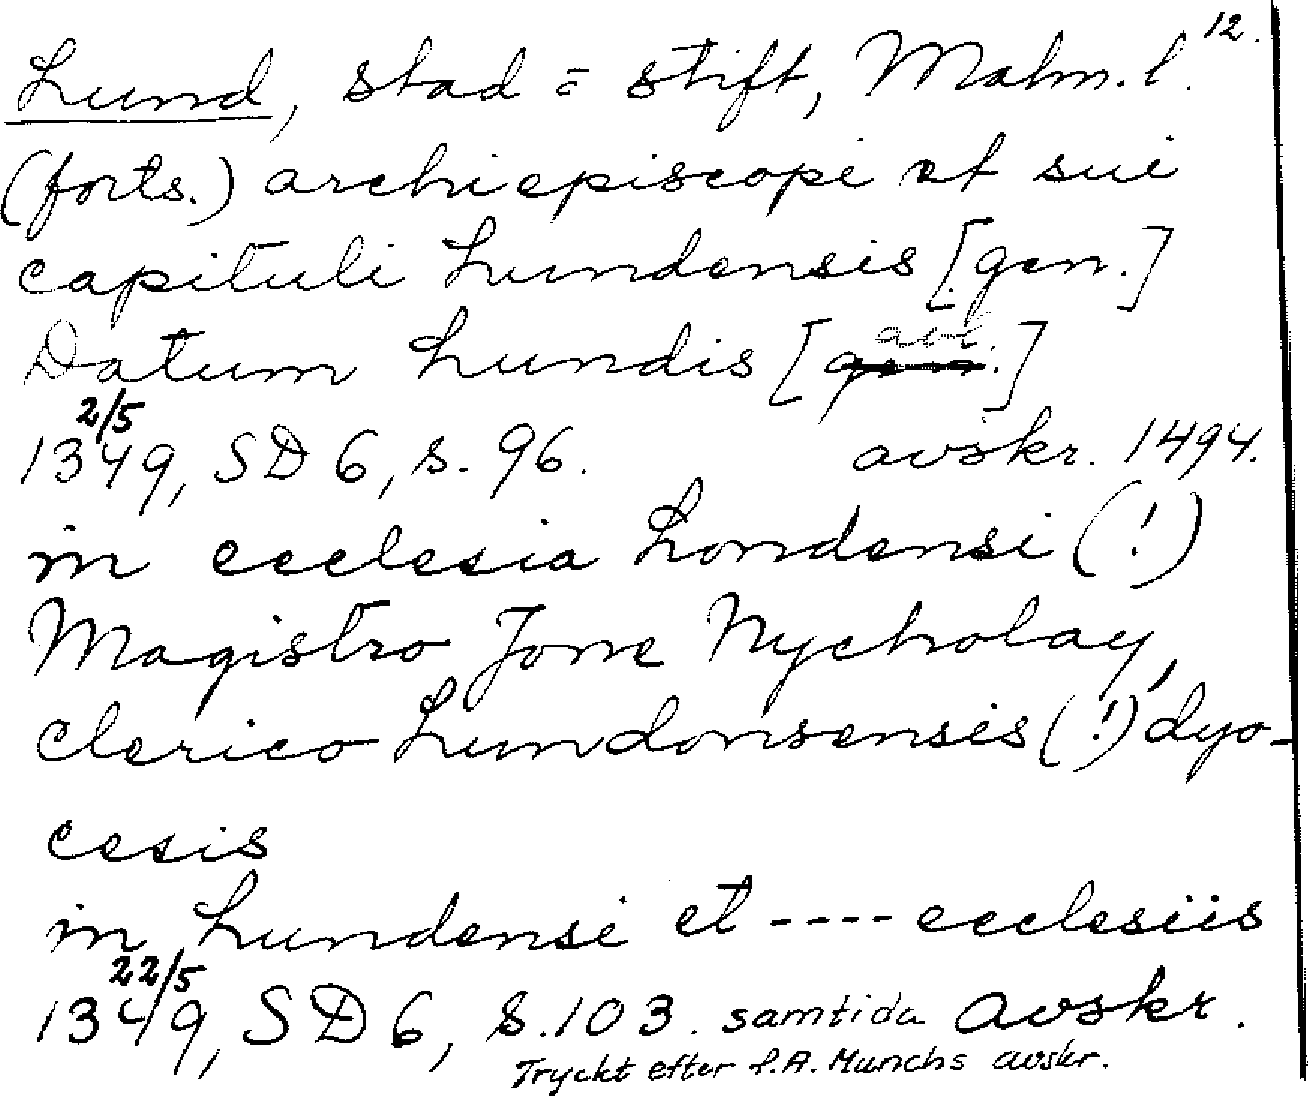 12.
Lund, stad = stift, Malm. l.
(forts.) archiepiscopi et sui
capituli Lundensis [gen.]
Datum Lundis [gen. abl.]
2/5
1349, SD 6, s. 96. avskr. 1494.
in ecclesia Londensi (!)
Magistro Jone Nycholay,
clerico Lundonsensis (!) dyo-
cesis
in Lundensi et ---- ecclesiis
22/5
1349, SD 6, s. 103. samtida avskr.
Tryckt efter P.A. Munchs avskr.